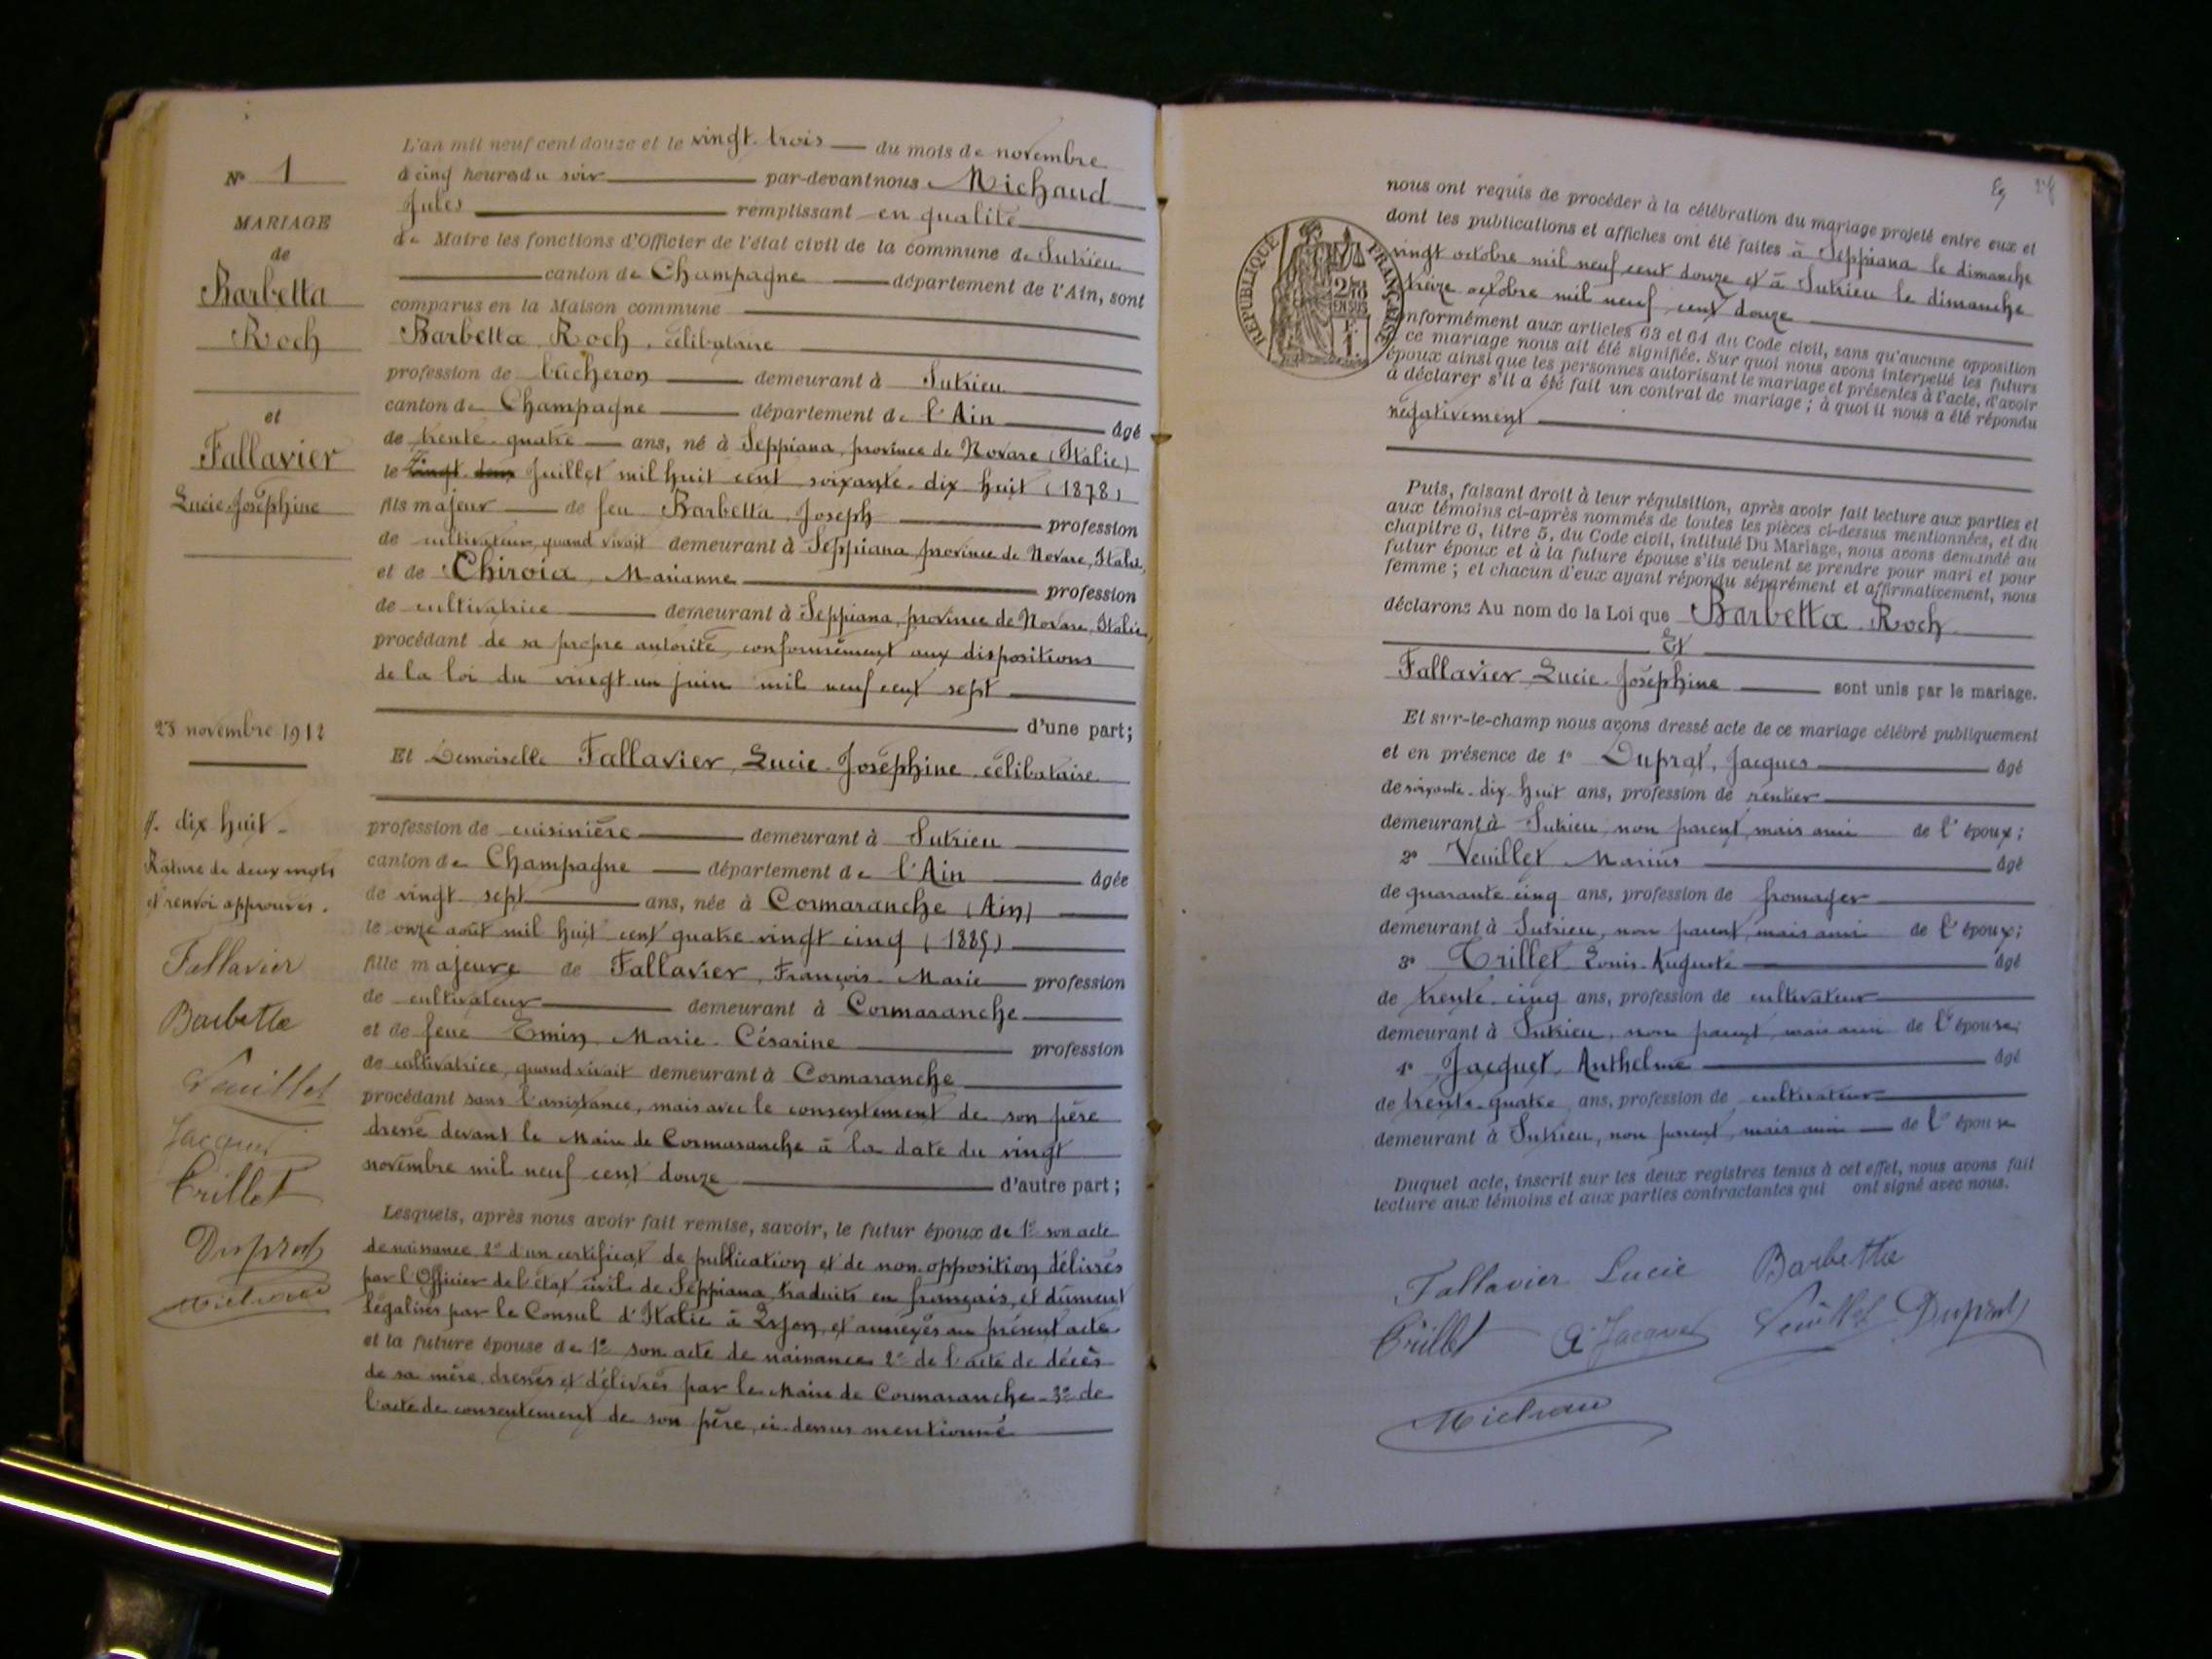 N° 1
MARIAGE
de
Barbetta
Roch
et
Fallavier
Lucie Joséphine
23 novembre 1912
/. dix huit -
Rature de deux mots
et renvoi approuvés.
Fallavier
Barbetta
Veuillet
Jacquet
Trillet
Duprat
Michaud
L'an mil neuf cent douze et le vingt-trois du mois de novembre
à cinq heures du soir par-devant nous Michaud
Jules remplissant en qualité
de Maire les fonctions d'Officier de l'état civil de la commune de Sutrieu
canton de Champagne département de l'Ain, sont
comparus en la Maison commune
Barbetta, Roch, célibataire
profession de bûcheron demeurant à Sutrieu
canton de Champagne département de l'Ain âgé
de trente-quatre ans, né à Seppiana, province de Novare (Italie)
le vingt deux /. Juillet mil huit cent soixante-dix huit (1878)
fils majeur de feu Barbetta, Joseph profession
de cultivateur, quand vivait demeurant à Seppiana, province de Novare, Italie,
et de Chiroia, Marianne profession
de cultivatrice demeurant à Seppiana, province de Novare, Italie,
procédant de sa propre autorité, conformément aux dispositions
de la loi du vingt un juin mil neuf cent sept
d'une part;
Et Demoiselle Fallavier, Lucie-Joséphine, célibataire
profession de cuisinière demeurant à Sutrieu
canton de Champagne département de l'Ain âgée
de vingt-sept ans, née à Cormaranche (Ain)
le onze août mil huit cent quatre vingt cinq (1885)
fille majeure de Fallavier, François-Marie profession
de cultivateur demeurant à Cormaranche
et de feue Emin, Marie-Césarine profession
de cultivatrice, quand vivait demeurant à Cormaranche
procédant sans l'assistance, mais avec le consentement de son père
dressé devant le Maire de Cormaranche à la date du vingt
novembre mil neuf cent douze d'autre part;
Lesquels, après nous avoir fait remise, savoir, le futur époux de 1° son acte
de naissance 2° d'un certificat de publication et de non opposition délivrés
par l'Officier de l'état civil de Seppiana, traduits en français, et dûment
légalisés par le Consul d'Italie à Lyon, et annexés au présent acte
et la future épouse de 1° son acte de naissance 2° de l'acte de décès
de sa mère, dressés et délivrés par le Maire de Cormaranche - 3° de
l'acte de consentement de son père, ci-dessus mentionné
nous ont requis de procéder à la célébration du mariage projeté entre eux et
dont les publications et affiches ont été faites à Seppiana le dimanche
vingt octobre mil neuf cent douze et à Sutrieu le dimanche
treize octobre mil neuf cent douze
conformément aux articles 63 et 64 du Code civil, sans qu'aucune opposition
à ce mariage nous ait été signifiée. Sur quoi nous avons interpellé les futurs
époux ainsi que les personnes autorisant le mariage et présentes à l'acte, d'avoir
à déclarer s'il a été fait un contrat de mariage; à quoi il nous a été répondu
négativement
RÉPUBLIQUE FRANÇAISE
2/10
EN SUS
F.
1.
Puis, faisant droit à leur réquisition, après avoir fait lecture aux parties et
aux témoins ci-après nommés de toutes les pièces ci-dessus mentionnées, et du
chapitre 6, titre 5, du Code civil, intitulé Du Mariage, nous avons demandé au
futur époux et à la future épouse s'ils veulent se prendre pour mari et pour
femme; et chacun d'eux ayant répondu séparément et affirmativement, nous
déclarons Au nom de la Loi que Barbetta Roch
Et
Fallavier Lucie-Joséphine sont unis par le mariage.
Et sur-le-champ nous avons dressé acte de ce mariage célébré publiquement
et en présence de 1° Duprat, Jacques âgé
de soixante-dix-huit ans, profession de rentier
demeurant à Sutrieu, non parent, mais ami de l'époux;
2° Veuillet Marius âgé
de quarante cinq ans, profession de fromager
demeurant à Sutrieu, non parent, mais ami de l'époux;
3° Trillet Louis-Auguste âgé
de trente-cinq ans, profession de cultivateur
demeurant à Sutrieu, non parent, mais ami de l'épouse;
4° Jacquet, Anthelme âgé
de trente-quatre ans, profession de cultivateur
demeurant à Sutrieu, non parent, mais ami de l'épouse
Duquel acte, inscrit sur les deux registres tenus à cet effet, nous avons fait
lecture aux témoins et aux parties contractantes qui ont signé avec nous.
Fallavier Lucie Barbetta
Trillet A Jacquet Veuillet Duprat
Michaud